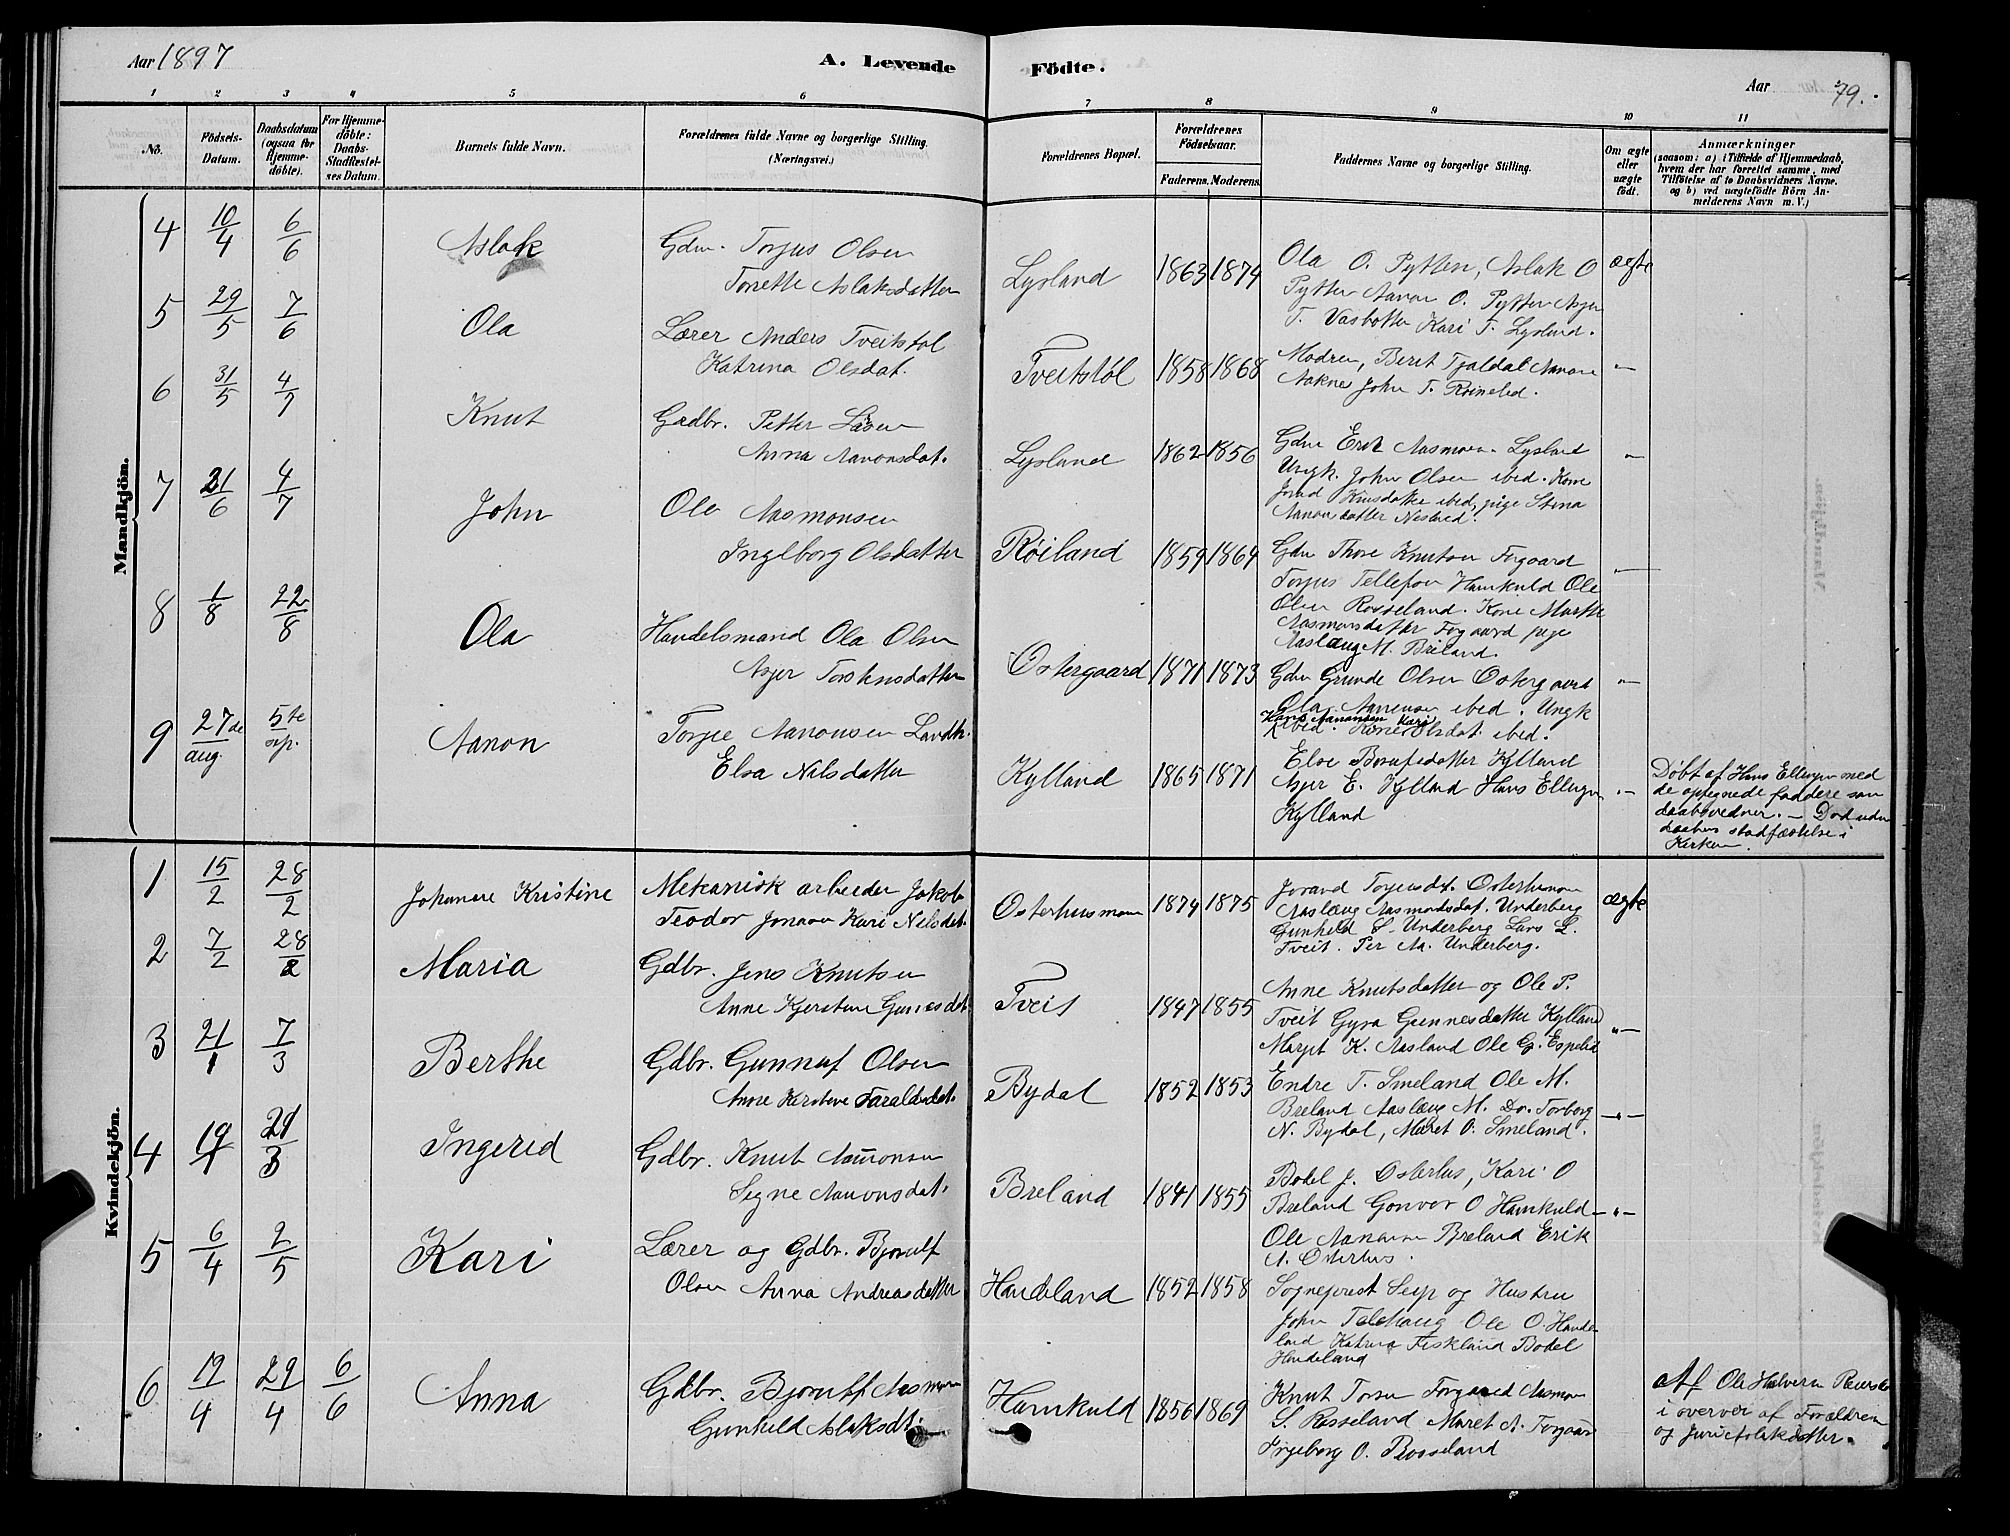 Aar 1897
A. Levende Födte.
Aar
79.
1 2 3 4 5 6 7 8 9 10 11
No.
Födsels-Datum.
Daabsdatum (ogsaa for Hjemmedöbte).
For Hjemmedöbte: Daabs-Stadfestelses Datum.
Barnets fulde Navn.
Forældrenes fulde Navne og borgerlige Stilling. (Næringsvei.)
Forældrenes Bopæl.
Forældrenes Födselsaar.
Faderens. Moderens.
Faddernes Navne og borgerlige Stilling.
Om ægte eller uægte födt.
Anmærkninger
(saasom: a) i Tilfælde af Hjemmedaab,
hvem der har forrettet samme, med
Tilföielse af to Daabsvidners Navne.
og b) ved uægtefödte Börn An-
melderens Navn m. V.)
Mandkjön.
4 10/4 6/6 Aslak Gdm. Torjus Olsen
Tonette Aslaksdatter
Lysland 1863 1874
Ola O. Pytten, Aslak O
Pytten Aanon O. Pytten Asjer
T. Vasbotten Kari T. Lysland.
ægte
5 29/5 7/6 Ola Lærer Anders Tveitstøl
Katrina Olsdat.
Tveitstøl 1858 1868
Modren, Berit Fjaldal Aanon
Aaknes John T. Røineled.
"
6 31/5 4/7 Knut Gadbr. Petter Larsen
Anna Aanonsdat.
Lysland 1862 1856
Gdm Erik Aasmon. Lysland
Ungk. John Olsen ibed. Kone
Jorand Knusdatter ibed, pige Stina
Aanonsdatter Neslaed.
"
7 21/6 4/7 John Ole Aasmonsen
Ingeborg Olsdatter
Røiland 1859 1864
Gdm Thore Knutsen Forgaard
Torjus Tellefsen Hamkuld Ole
Olsen Rosseland. Kone Marthe
Aasmonsdatter Fogaard pige
Aaslaug M. Breland.
"
8 1/8 22/8 Ola Handelsmand Ola Olsen
Asjer Torstensdatter
Ostergaard 1871 1873
Gdm Grunde Olsen Ostergaard
Ola Aanensen ibed. Ungk
Hans Aanonsen Kari
ibed. Kone Olsdat. ibed.
"
9 27de aug. 5te sep. Aanon Torjre Aanonsen Landh.
Elsa Nilsdatter
Kylland 1865 1871
Else Bernsesdatter Kylland
Asjer E. Kylland Hans Ellingsen
Kylland
"
Døbt af Hans Ellingsen med
de optegnede faddere som
daabsvidner. – Død uden
daabens stadfæstelse i
Kirken.
Kvindekjön.
1 15/2 28/2 Johanne Kristine Mekanisk arbeider Jakob
Teodor Jonasen Kari Nilsdat.
Osterhusmoen 1874 1875
Jorand Torjusdt. Osterhusmoen
Aaslaug Aasmondsdat. Underberg
Gunheld S. Underberg Lars L.
Tveit. Per Aa. Underberg.
ægte
2 7/2 28/2 Maria Gdbr. Jens Knutsen
Anne Kjerstine Gunesdat.
Tveit 1847 1855
Anne Knutsdatter og Ole P.
Tveit Gyra Gunnesdatter Kylland
Marget K. Aasland Ole G. Espelid
"
3 21/1 7/3 Berthe Gdbr. Gunnuf Olsen
Anne Kirstine Faraldsdat.
Bydal 1852 1853
Endre T. Smeland Ole M.
Breland Aaslaug M. Do. Torborg
N. Bydal, Maret O. Smeland.
"
4 19/1 21/3 Ingerid Gdbr. Knut Aanonsen
Segne Aanonsdat.
Breland 1841 1855
Bodel J. Osterhus, Kari O
Breland Gonver O Hamkuld
Ole Aanonsen Breland Erik
A. Osterhus.
"
5 6/4 2/5 Kari Lærer og Gdbr. Bjorulf
Olsen Anna Andreasdatter
Haudeland 1852 1858
Sogneprest Seip og Hustru
John Telehaug Ole O. Haude-
land Katrina Fiskland Bodel
Haudeland
6 19/4 29/4 6/6 Anna Gdbr. Bjorulf Aasmon
Gunheld Aslaksdt.
Hamkuld 1856 1869
Knut Torsen Forgaard Aasmon
S. Rosseland Maret A. Forgaar
Ingeborg O. Rosseland
Af Ole Halvorsen
i overvær af Forældrene
og Juri Aslaksdatter.